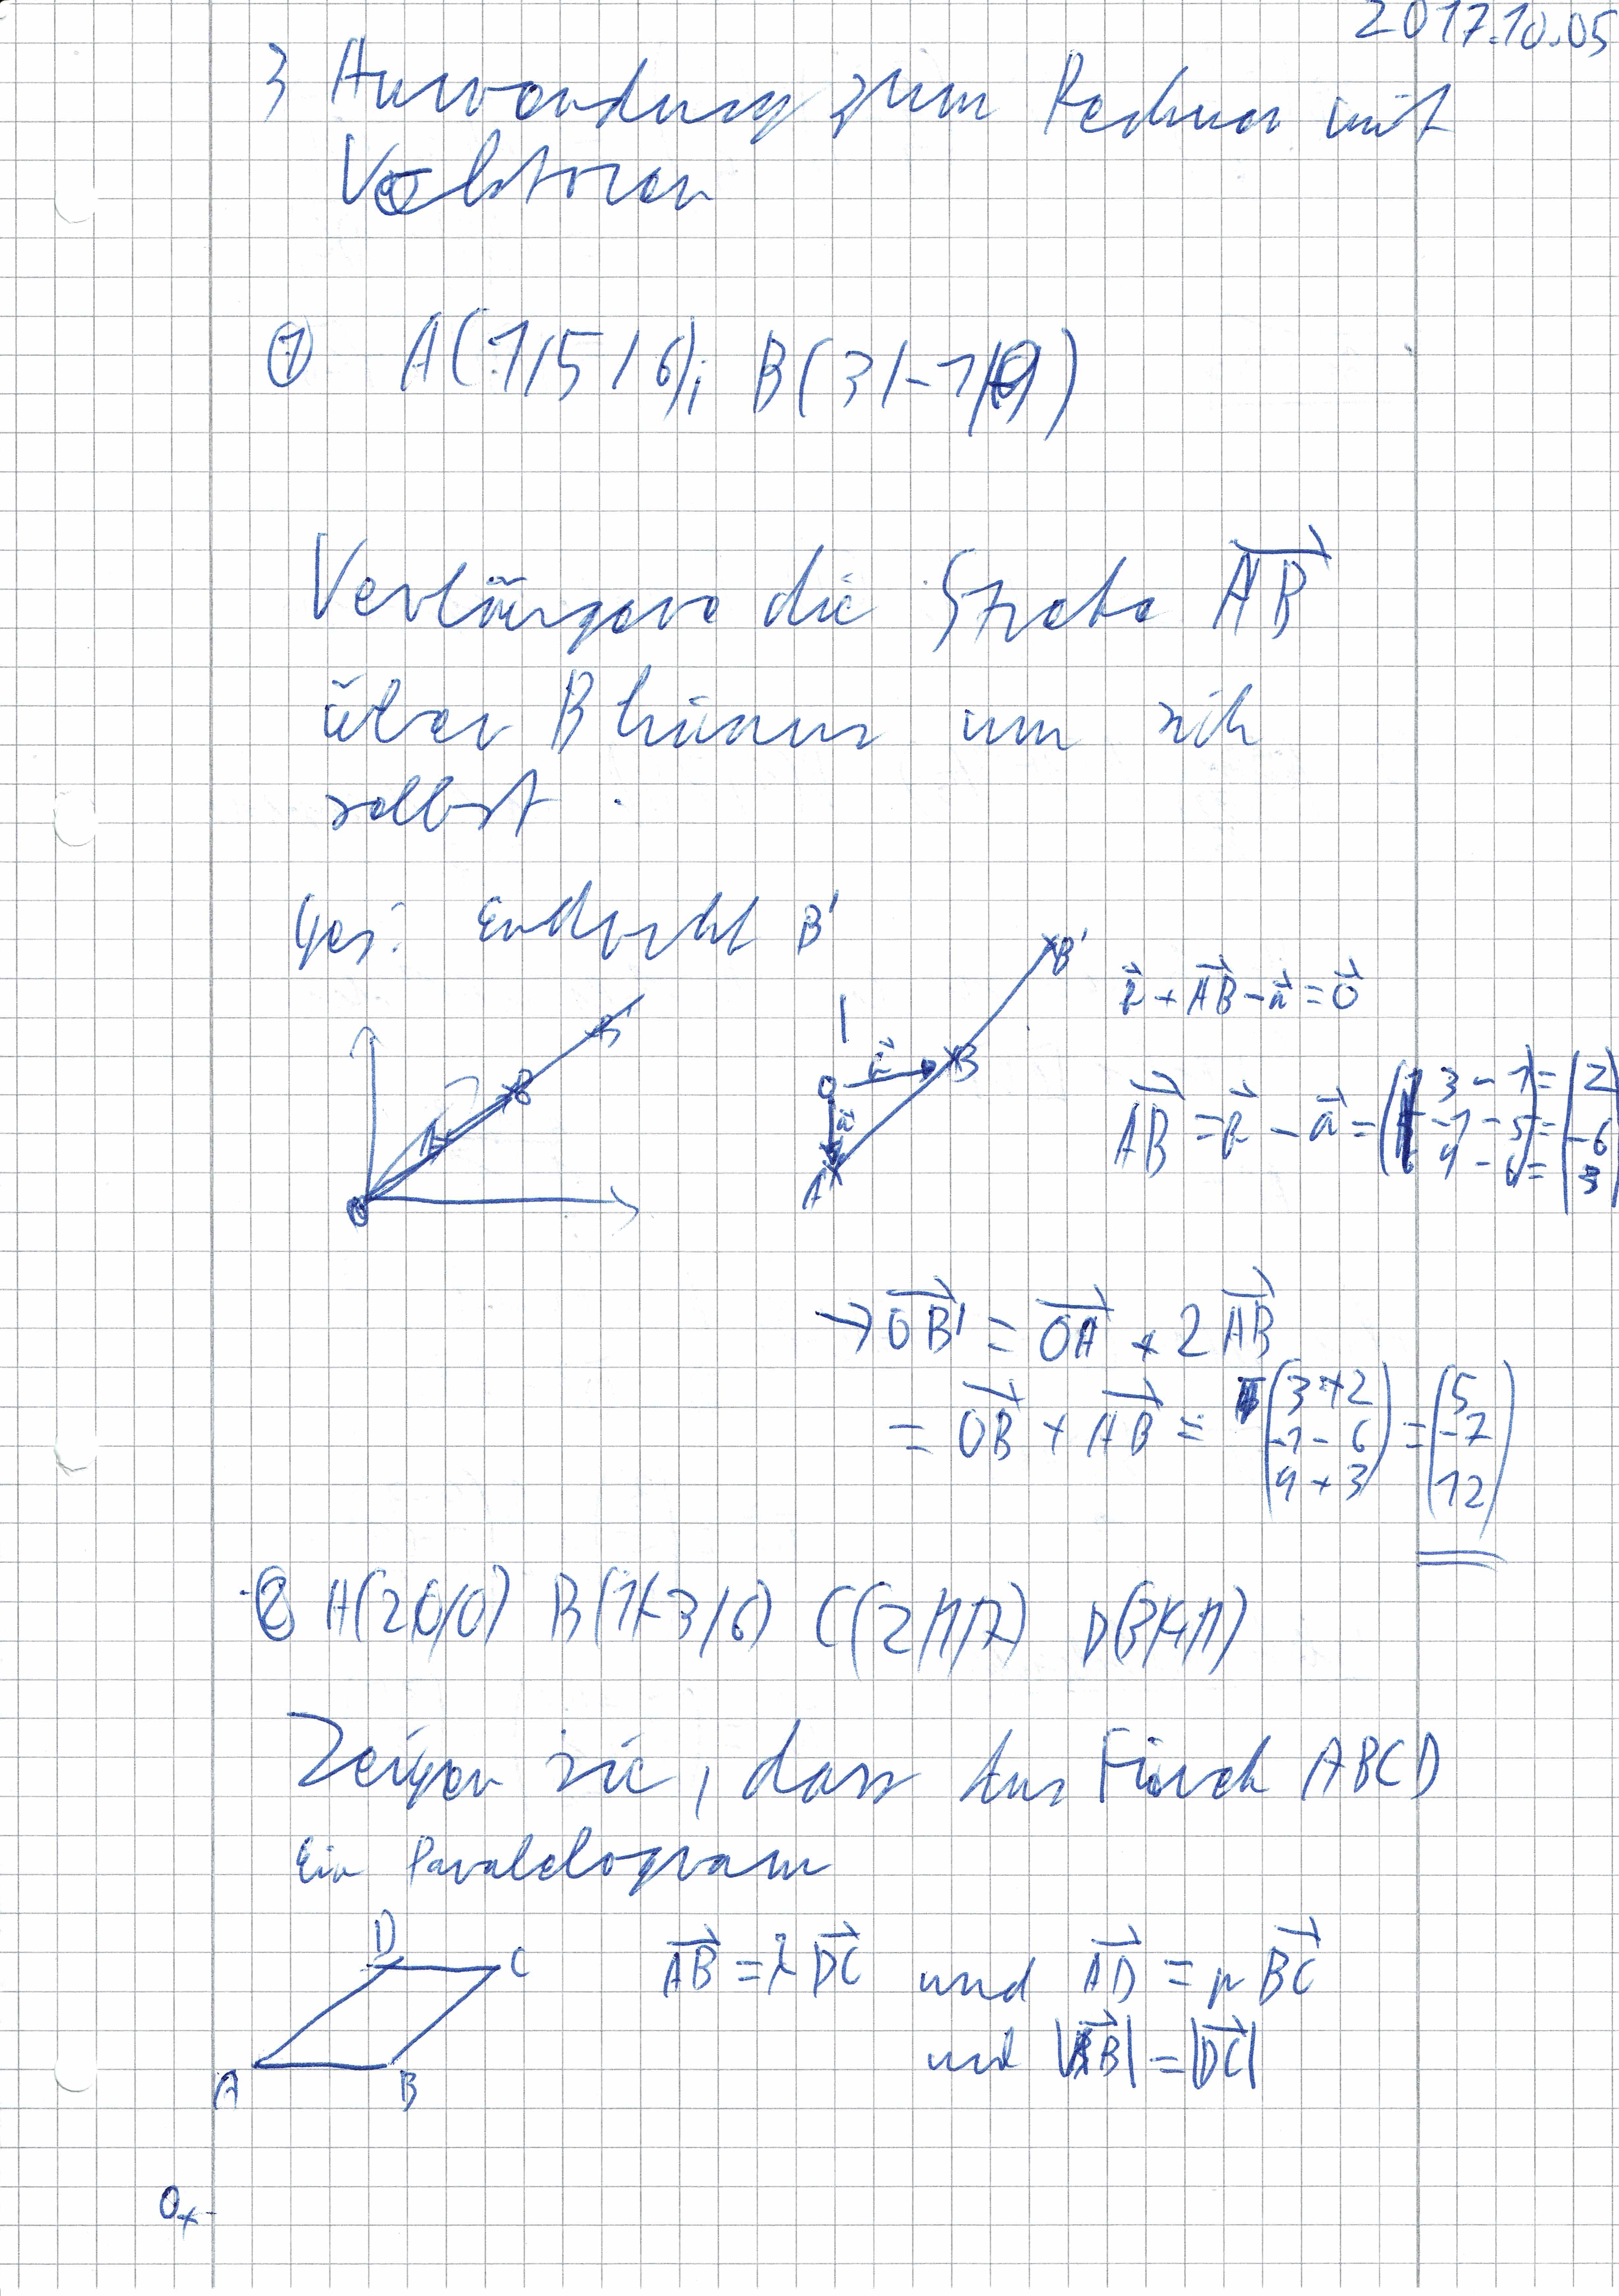 2017.10.05
3 Anwendung zum Rechnen mit
Vektoren
① A(1/5/6); B(3/-1/9)
Verlängere die Strecke AB
über B hinaus um sich
selbst.
ges: Endpunkt B'
B'
B
A
O
B'
B
O
b
a
A
b + AB - a = 0
AB = b - a = (3 - 1 = (2
-1 - 5 = -6
9 - 6 = 3)
→ OB' = OA + 2 AB
= OB + AB = (3+2 = (5
-1 - 6 -7
9 + 3) 12)
② A(2/0/0) B(1/-3/6) C(2/1/7)
Zeigen sie, dass das Viereck ABCD
Ein Paralelogram
D
C
A
B
AB = λ DC und AD = μ BC
und |AB| = |DC|